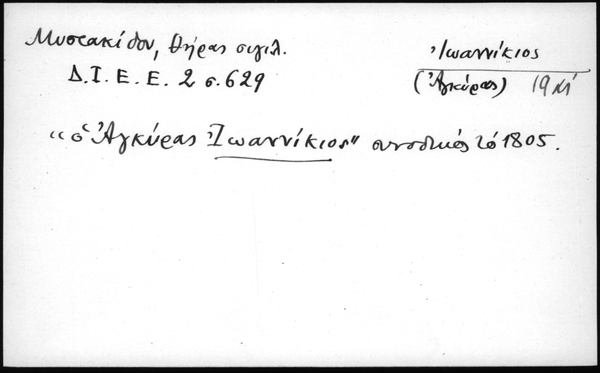 Μυστακίδου, Θήρας σιγιλ.
Δ.Ι.Ε.Ε. 2 σ.629
Ἰωαννίκιος
(Ἀγκύρας) 19
"ὁ Ἀγκύρας Ἰωαννίκιος" συνοδικός τό 1805.